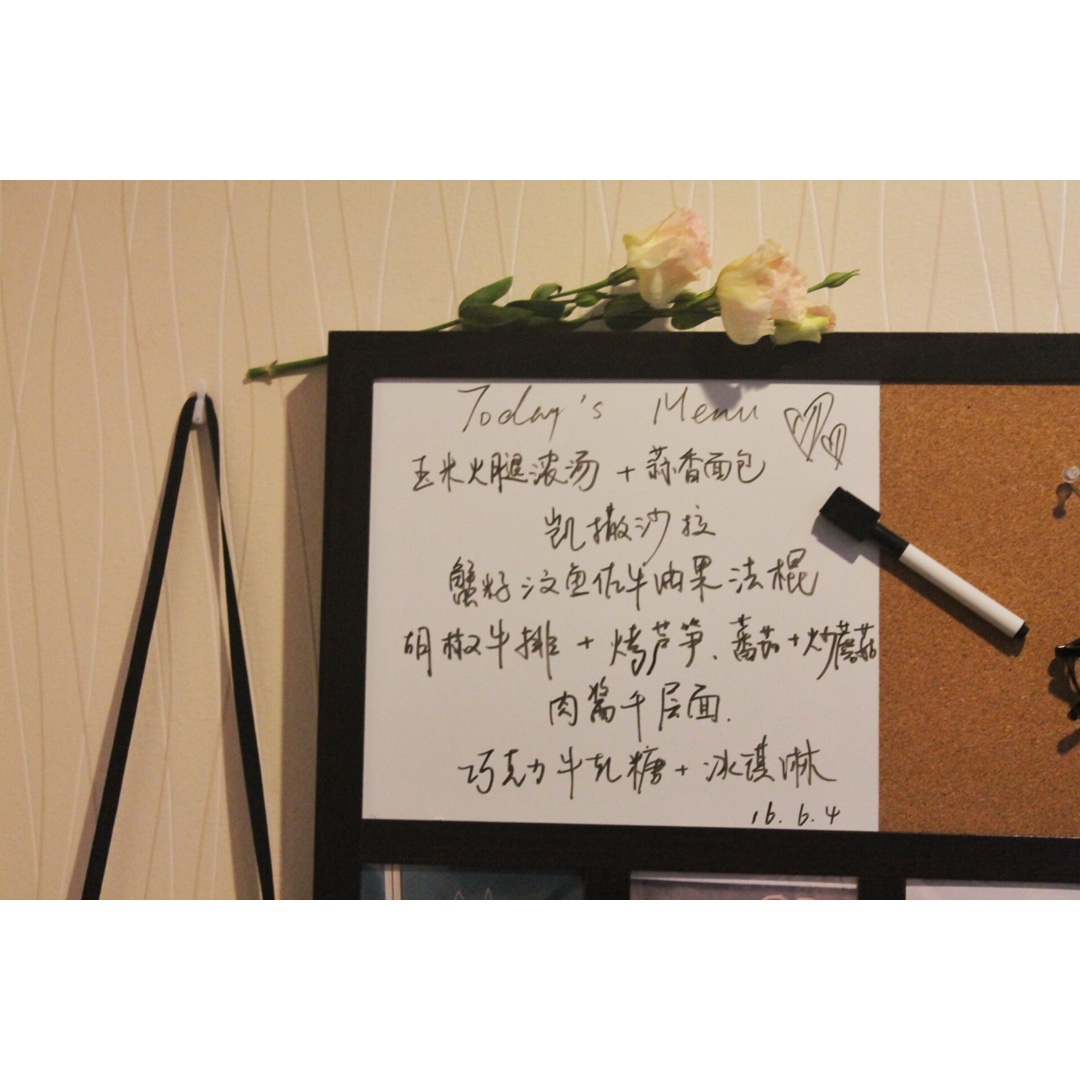 Today's Menu
玉米火腿浓汤 + 蒜香面包
凯撒沙拉
蟹籽汶鱼佐牛油果法棍
胡椒牛排 + 烤芦笋、蕃茄+炒蘑菇
肉酱千层面.
巧克力牛轧糖 + 冰淇淋
16.6.4